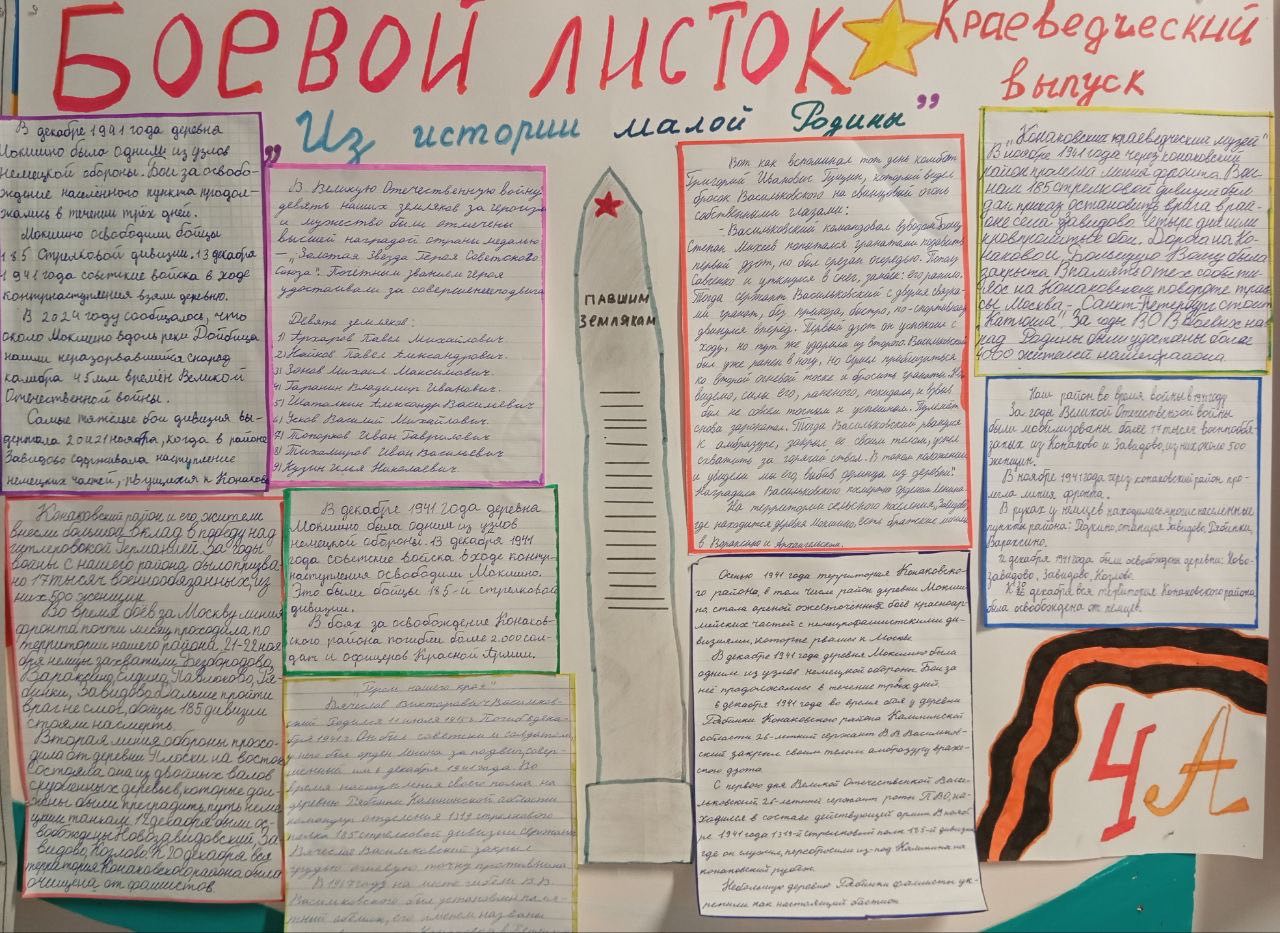 БОЕВОЙ ЛИСТОК
Краеведческий
выпуск
„Из истории малой Родины”
В декабре 1941 года деревня
Мокшино была одним из узлов
немецкой обороны. Бои за освобо-
ждение населённого пункта продол-
жались в течении трёх дней.
Мокшино освободили бойцы
185 Стрелковой дивизии. 13 декабря
1941 года советские войска в ходе
контрнаступления взяли деревню.
В 2024 году сообщалось, что
около Мокшино вдоль реки Дойбица
нашли неразорвавшийся снаряд
калибра 45 мм времён Великой
Отечественной войны.
Самые тяжелые бои дивизия вы-
держала 20 и 21 ноября, когда в районе
Завидово сдерживала наступление
немецких частей, рвущихся к Конаково
В Великую Отечественную войну
девять наших земляков за героизм
и мужество были отмечены
высшей наградой страны медалью
— „Золотая Звезда Героя Советского
Союза". Почётным званием героя
удостаивали за совершение подвига
Девять земляков:
1) Гухаров Павел Михайлович.
2) Кайков Павел Александрович.
3) Зонов Михаил Максимович.
4) Таранин Владимир Иванович.
5) Шаталкин Александр Васильевич
6) Усков Василий Михайлович.
7) Топорков Иван Гаврилович
8) Тихомиров Иван Васильевич
9) Кузин Илья Николаевич.
ПАВШИМ
ЗЕМЛЯКАМ
Вот как вспоминал тот день комбат
Григорий Иванович Гущин, который видел
бросок Васильковского на свинцовый огонь
собственными глазами:
- Васильковский командовал взводом. Боец
Степан Михеев попытался гранатами подавить
первый дзот, но был срезан очередью. Пополз
Савенко и уткнулся в снег, замолк: его ранило.
Тогда сержант Васильковский с двумя связка-
ми гранат, без приказа, быстро, по-спортивному
двинулся вперед. Первый дзот он успокоил с
ходу, но тут же ударили из второго. Васильковский
был уже ранен в ногу, но сумел приблизиться
ко второй огневой точке и бросить гранаты. Но
видимо, силы его, раненого, покидали, и взрыв
был не совсем точным и успешным. Пулемёт
снова зарокотал. Тогда Васильковский рванулся
к амбразуре, закрыл ее своим телом, успев
схватить за горячий ствол. В таком положении
и увидели мы его, выбив фрицев из деревни".
Наградили Васильковского посмертно орденом Ленина.
На территории сельского поселения Завидово,
где находится деревня Мокшино, есть братские могилы
в Вараксино и Архангельском.
„Конаковский краеведческий музей"
В ноябре 1941 года через конаковский
район прошла линия фронта. Вои-
нам 185 стрелковой дивизии был
дан приказ остановить врага в рай-
оне села Завидово. Четыре дня шли
кровопролитные бои. Дорога на Ко-
наково и Большую Волгу была
закрыта. В память о тех событи-
ях на Конаковском повороте трас-
сы Москва - Санкт-Петербург стоит
„Катюша". За годы В.О.В. боевых на-
град Родины были удостоены более
4000 жителей нашего района
Наш район во время войны в 1941 году
За годы Великой Отечественной войны
были мобилизованы более 17 тысяч военнообя-
занных из Конаково и Завидово, из них около 500
женщин.
В ноябре 1941 года через конаковский район про-
шла линия фронта.
В руках у немцев находились многие населенные
пункты района: станция Завидово, Рябинки,
Вараксино.
декабря 1941 года были освобождены деревни: Ново-
завидово, Завидово, Козлово.
К 20 декабря вся территория Конаковского района
была освобождена от немцев.
Конаковский район и его жители
внесли большой вклад в победу над
гитлеровской Германией. За годы
войны с нашего района было призва-
но 17 тысяч военнообязанных, из
них 500 женщин.
Во время боёв за Москву линия
фронта почти месяц проходила по
территории нашего района. 21-22 ноя-
бря немцы захватили Безбородово,
Вараксино, Елдино, Павлюково, Ря-
бинки, Завидово. Дальше пройти
враг не смог, бойцы 185 дивизии
стояли насмерть.
Вторая линия обороны прохо-
дила от деревни Плоски на восток,
состояла она из двойных валов
срубленных деревьев, которые дол-
жны были преградить путь неме-
цким танкам. 17 декабря были ос-
вобождены Новозавидовский, За-
видово, Козлово. К 20 декабря вся
территория Конаковского района была
очищена от фашистов
В декабре 1941 года деревня
Мокшино была одним из узлов
немецкой обороны. 13 декабря 1941
года советские войска в ходе контр-
наступления освободили Мокшино.
Это были бойцы 185-й стрелковой
дивизии.
В боях за освобождение Конаков-
ского района погибли более 2.000 сол-
дат и офицеров Красной Армии.
„Герои нашего края"
Вячеслав Викторович Васильков-
ский. Родился 11 июля 1915 г. Погиб 6 дека-
бря 1941 г. Он был советским солдатом,
у него был орден Ленина за подвиг, совер-
шенный им 6 декабря 1941 года. Во
время наступления своего полка на
деревню Рябинки Калининской области
командир отделения 1319 стрелкового
полка 185 стрелковой дивизии Сержант
Вячеслав Васильковский закрыл
грудью огневую точку противника
В 1967 году на месте гибели В.В.
Васильковского был установлен памя-
тный обелиск, его именем названы
Осенью 1941 года территория Конаковско-
го района, в том числе район деревни Мокши-
но, стала ареной ожесточенных боев красноар-
мейских частей с немецкофашистскими ди-
визиями, которые рвались к Москве
В декабре 1941 года деревня Мокшино была
одним из узлов немецкой обороны. Бои за
неё продолжались в течение трёх дней.
6 декабря 1941 года во время боя у деревни
Рябинки Конаковского района Калининской
области 26-летний сержант В.В. Васильков-
ский закрыл своим телом амбразуру враже-
ского дзота
С первого дня Великой Отечественной Васи-
льковский 26-летний сержант роты ПВО, на-
ходился в составе действующей армии. В нояб-
ре 1941 года 1319-й стрелковый полк 185-й дивизии
где он служил, перебросили из-под Калинина на
конаковский рубеж.
Небольшую деревню Рябинки фашисты ук-
репили как настоящий бастион
4 А